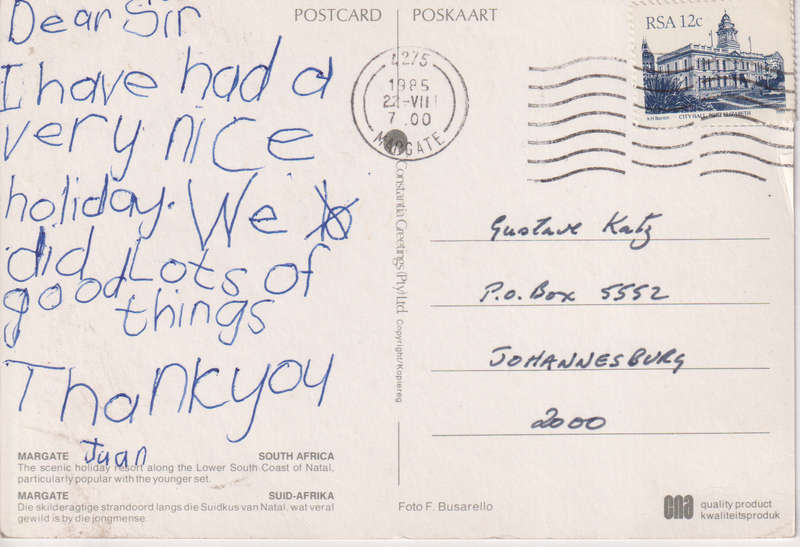 POSTCARD POSKAART
Dear Sir
I have had a
very nice
holiday. We
did Lots of
good things
Thankyou
Juan
MARGATE SOUTH AFRICA
The scenic holiday resort along the Lower South Coast of Natal,
particularly popular with the younger set.
MARGATE SUID-AFRIKA
Die skilderagtige strandoord langs die Suidkus van Natal, wat veral
gewild is by die jongmense.
Constantia Greetings (Pty) Ltd. Copyright/Kopiereg
4275
1985
22-VIII
7.00
MARGATE
RSA 12c
A H Barrett
CITY HALL, PORT ELIZABETH
Gustave Katz
P.O. Box 5552
JOHANNESBURG
2000
Foto F. Busarello
cna quality product
kwaliteitsproduk